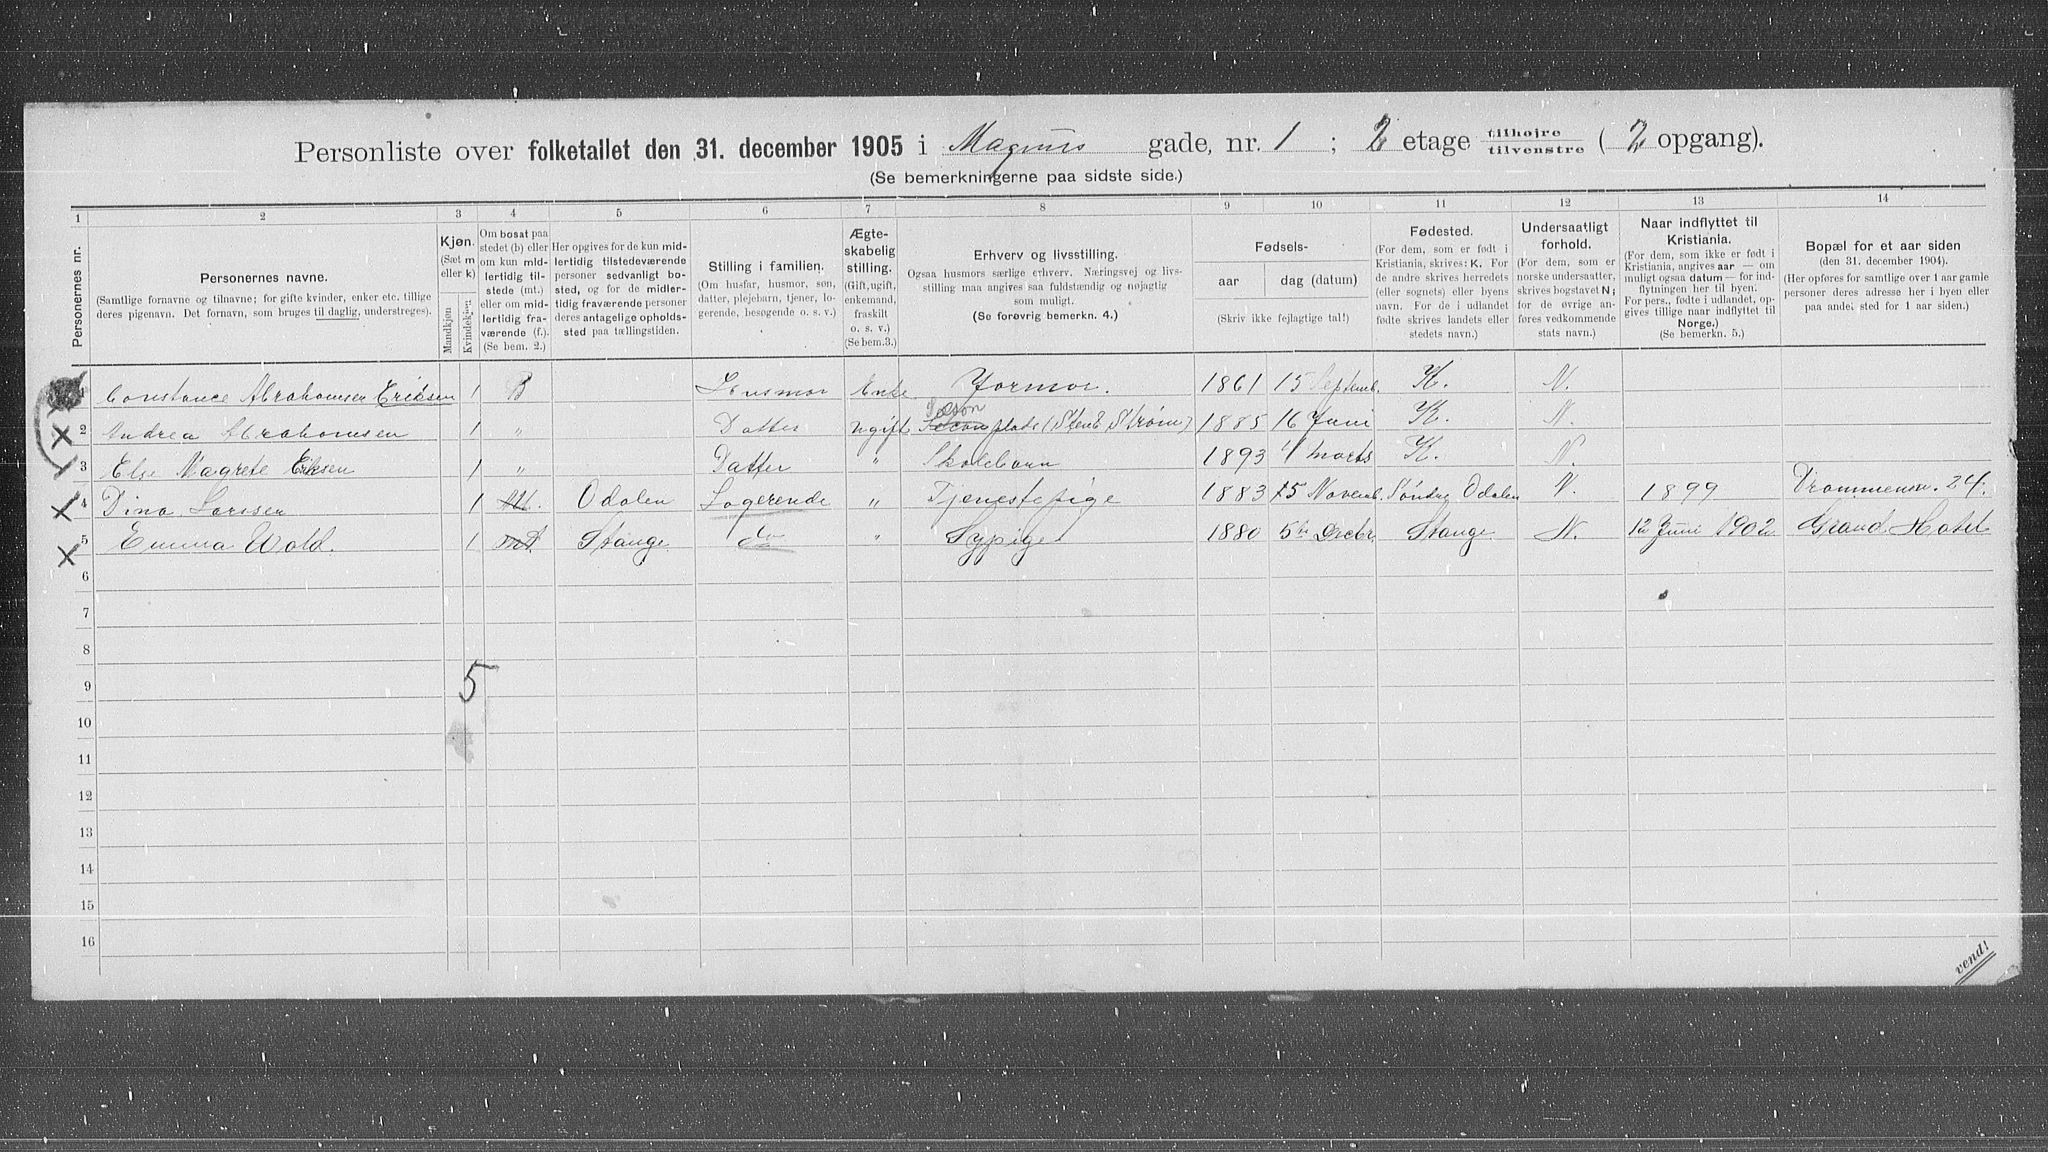 Personliste over folketallet den 31. december 1905 i Magnus gade, nr. 1 ; 2 etage tilhøjre tilvenstre ( 2 opgang).
(Se bemerkningerne paa sidste side.)
1 2 3 4 5 6 7 8 9 10 11 12 13 14
Personernes nr.
Personernes navne.
(Samtlige fornavne og tilnavne; for gifte kvinder, enker etc. tillige
deres pigenavn. Det fornavn, som bruges til daglig, understreges).
Kjøn.
(Sæt m
eller k)
Mandkjøn
Kvindekjøn
Om bosat paa
stedet (b) eller
om kun mid-
lertidig til-
stede (mt.)
eller om mid-
lertidig fra-
værende (f.).
(Se bem. 2.)
Her opgives for de kun mid-
lertidig tilstedeværende
personer sedvanlig bo-
sted, og for de midler-
tidig fraværende personer
deres antagelige opholds-
sted paa tællingstiden.
Stilling i familien.
(Om husfar, husmor, søn,
datter, plejebarn, tjener, lo-
gerende, besøgende o. s. v.)
Ægte-
skabelig
stilling.
(Gift, ugift,
enkemand,
fraskilt
o. s. v.)
(Se bem.3.)
Erhverv og livsstilling.
Ogsaa husmors særlige erhverv. Næringsvej og livs-
stilling maa angives saa fuldstændig og nøjagtig
som muligt.
(Se forøvrig bemerkn. 4.)
Fødsels-
aar dag (datum)
(Skriv ikke fejlagtige tal!)
Fødested.
(For dem, som er født i
Kristiania, skrives: K. For
de andre skrives herredets
(eller sognets) eller byens
navn. For de i udlandet
fødte skrives landets eller
stedets navn.)
Undersaatligt
forhold.
(For dem, som er
norske undersaatter,
skrives bogstavet N;
for de øvrige an-
føres vedkommende
stats navn.)
Naar indflyttet til
Kristiania.
(For dem, som ikke er født i
Kristiania, angives aar — om
muligt ogsaa datum — for ind-
flytningen her til byen.
For pers., fødte i udlandet, op-
gives tillige naar indflyttet til
Norge.)
(Se bemerkn. 5.)
Bopæl for et aar siden
(den 31. december 1904).
(Her opføres for samtlige over 1 aar gamle
personer deres adresse her i byen eller
paa andet sted for 1 aar siden.)
1 Constance Abrahamsen Eriksen 1 B Husmor Enke Jormor. 1861 15 Septemb. K. N.
2 Andrea Abrahamsen 1 " Datter Ugift plade (Steen & Strøm) 1885 16 Juni K. N.
3 Else Magrete Eriksen 1 " Datter " Skolebarn 1893 4 Marts K. N.
4 Dina Larsen 1 Mt. Odalen Logerende " Tjenestepige 1883 15 Novemb. Søndre Odalen N. 1899 Drammensv. 24.
5 Emma Wold. 1 mt. Stange do " Sypige 1880 5te Decbr. Stange N. 12 Juni 1902. Grand Hotel
6
7
8
9 5
10
11
12
13
14
15
16
vend!